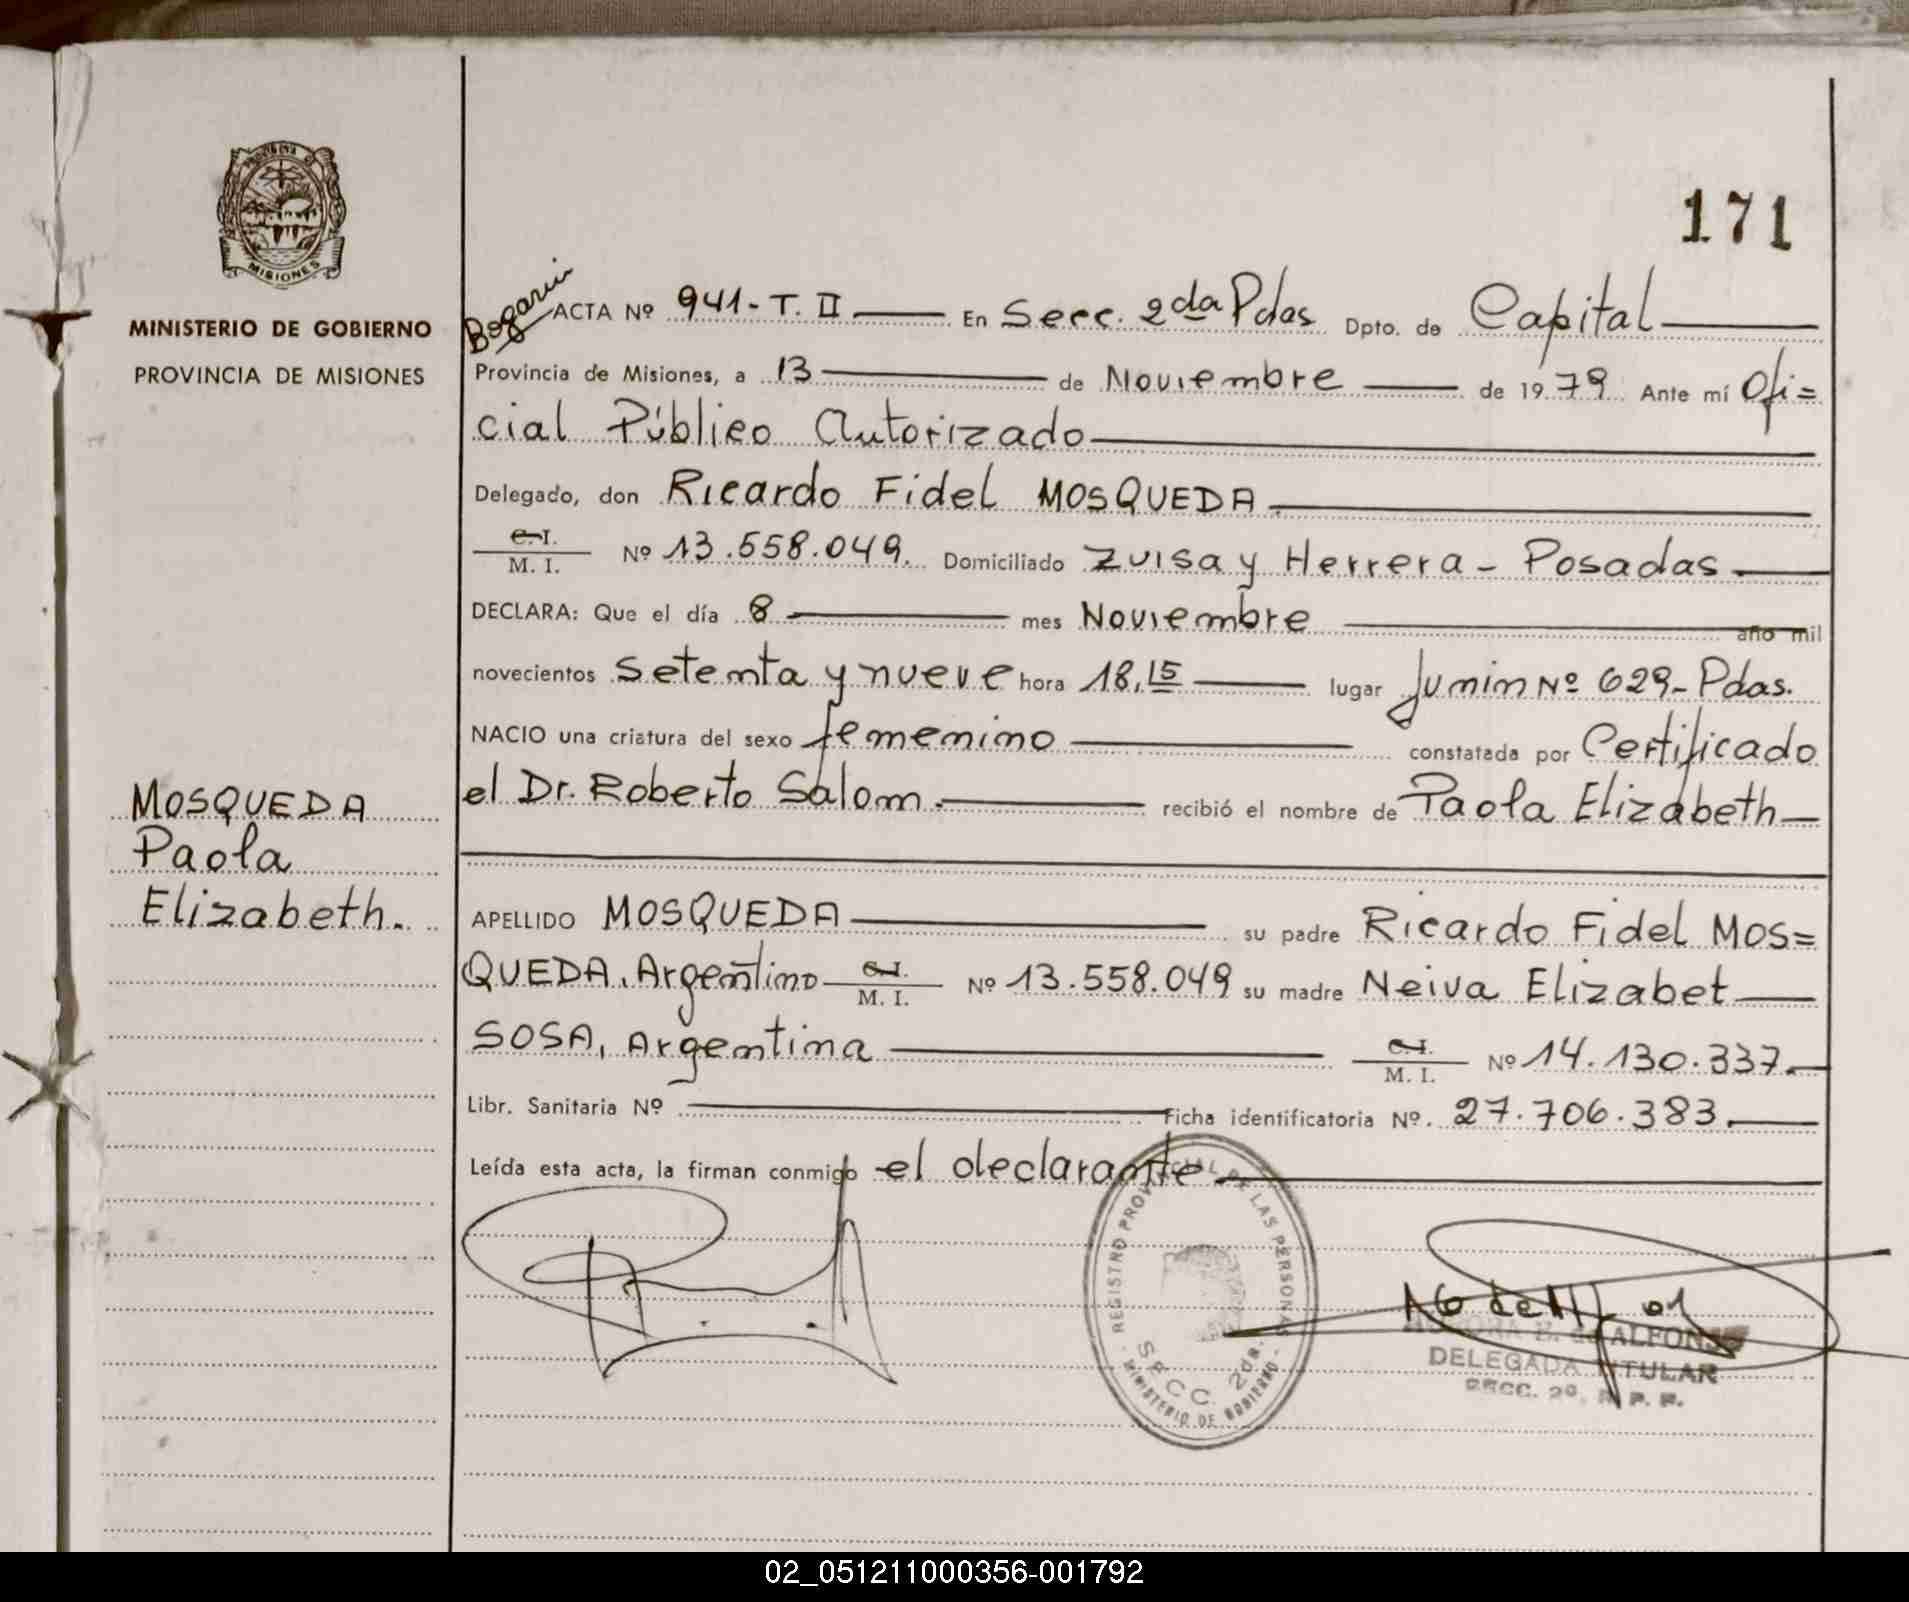 PROVINCIA DE
MISIONES
MINISTERIO DE GOBIERNO
PROVINCIA DE MISIONES
171
Bogarin
ACTA Nº 941-T. II En Secc. 2da Pdas Dpto. de Capital
Provincia de Misiones, a 13 de Noviembre de 1979 Ante mí Ofi=
cial Público Autorizado
Delegado, don Ricardo Fidel MOSQUEDA
C.I.
M. I. Nº 13.558.049. Domiciliado Zuisa y Herrera - Posadas
DECLARA: Que el día 8 mes Noviembre año mil
novecientos setenta y nueve hora 18,15 lugar Junin Nº 629-Pdas.
NACIO una criatura del sexo femenino constatada por Certificado
el Dr. Roberto Salom. recibió el nombre de Paola Elizabeth
MOSQUEDA
Paola
Elizabeth.
APELLIDO MOSQUEDA su padre Ricardo Fidel MOS=
QUEDA, Argentino C.I. M. I. Nº 13.558.049 su madre Neiva Elizabet
SOSA, Argentina C.I. M. I. Nº 14.130.337.
Libr. Sanitaria Nº Ficha identificatoria Nº. 27.706.383.
Leída esta acta, la firman conmigo el declarante
REGISTRO PROVINCIAL DE LAS PERSONAS
SECC. 2da.
- MINISTERIO DE GOBIERNO -
B. de ALFONSO
DELEGADA TITULAR
SECC. 2º. R. P. P.
02_051211000356-001792